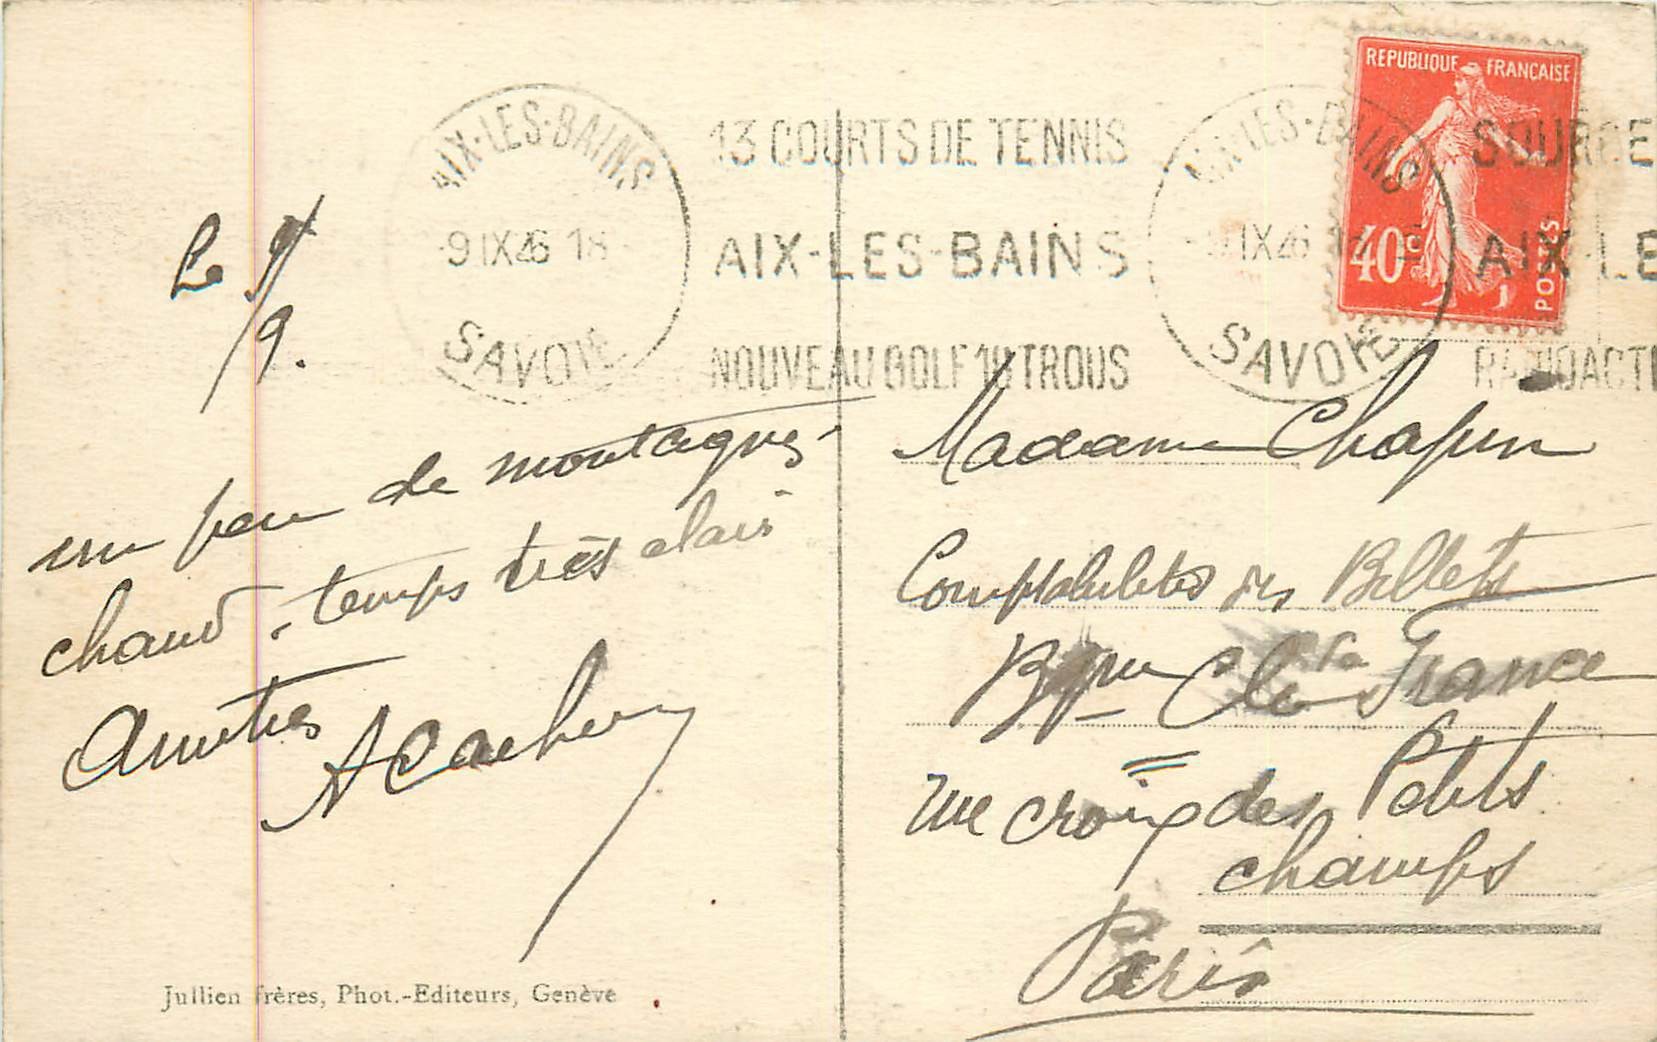 AIX-LES-BAINS
9 IX 26 18
SAVOIE
13 COURTS DE TENNIS
AIX-LES-BAINS
NOUVEAU GOLF 18 TROUS
AIX-LES-BAINS
IX 26
SAVOIE
REPUBLIQUE FRANÇAISE
40c
POSTES
SOURCE
AIX-LE
RADIOACTI
Le 9/9.
un peu de montagnes
chaud, temps très clair
Amitiés
Madame Chapin
Comptabilité des Billets
Bque de la France
rue croix des Petits
champs
Paris
Jullien frères, Phot.-Editeurs, Genève